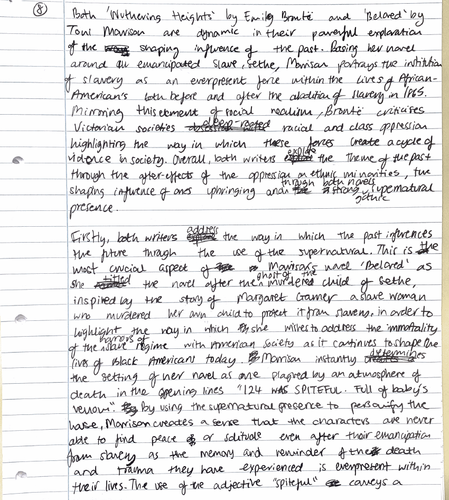 8
Both 'Wuthering Heights' by Emily Brontë and 'Beloved' by
Toni Morrison are dynamic in their powerful exploration
of the shaping influence of the past. Basing her novel
around an emancipated slave, Sethe, Morrison portrays the institution
of slavery as an everpresent force within the lives of African-
American's both before and after the abolition of slavery in 1865.
Mirroring this element of social realism, Brontë criticises
Victorian societies deep-rooted racial and class oppression
highlighting the way in which these forces create a cycle of
violence in society. Overall, both writers explore the theme of the past
through the after-effects of the oppression on ethnic minorities, the
shaping influence of ones upbringing and through both novels strong supernatural
gothic
presence.
Firstly, both writers address the way in which the past influences
the future through the use of the supernatural. This is the
most crucial aspect of Morrison's novel 'Beloved' as
she titled the novel after the ghost of the murdered child of Sethe,
inspired by the story of Margaret Garner a slave woman
who murdered her own child to protect it from slavery, in order to
highlight the way in which she wishes to address the immortality
of the horrors of slave regime with American society as it continues to shape the
lives of Black Americans today. Morrison instantly determines
the setting of her novel as one plagued by an atmosphere of
death in the opening lines "124 WAS SPITEFUL. Full of baby's
venom". By using the supernatural presence to personify the
house, Morrison creates a sense that the characters are never
able to find peace or solitude even after their emancipation
from slavery as the memory and reminder of the death
and trauma they have experienced is everpresent within
their lives. The use of the adjective "spiteful" conveys a